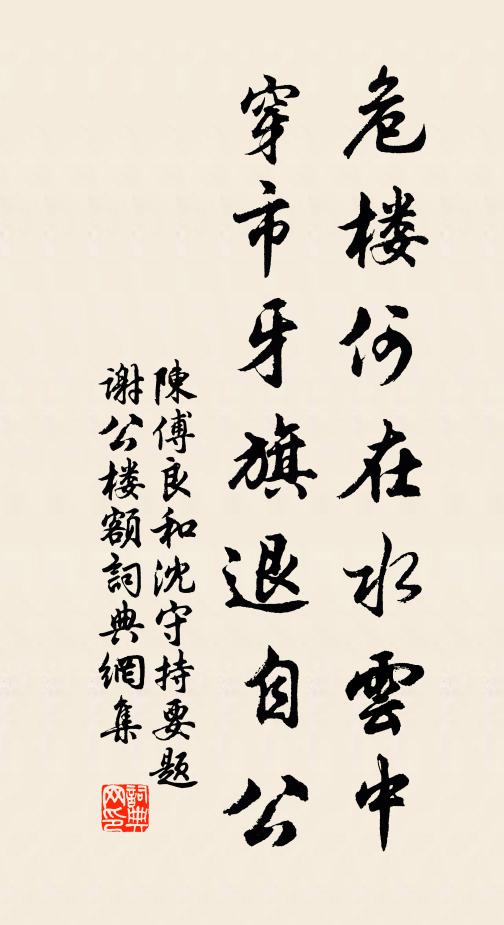 危楼何在水雲中
穿市牙旗退自公
陳傅良和沈守持要题
谢公楼額詞典網集
詞典网印